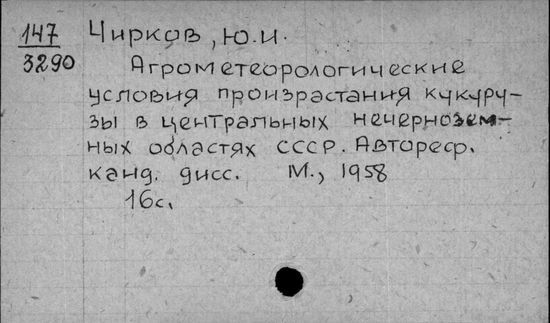 147 Чирков, Ю.И.
3290
Агрометеорологические
условия произрастания кукуру-
зы в центральных нечернозем-
ных областях СССР. Автореф.
канд. дисс. М., 1958
16с.